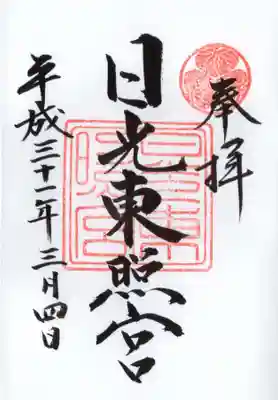 奉拝
日光東照宮
平成三十一年三月四日